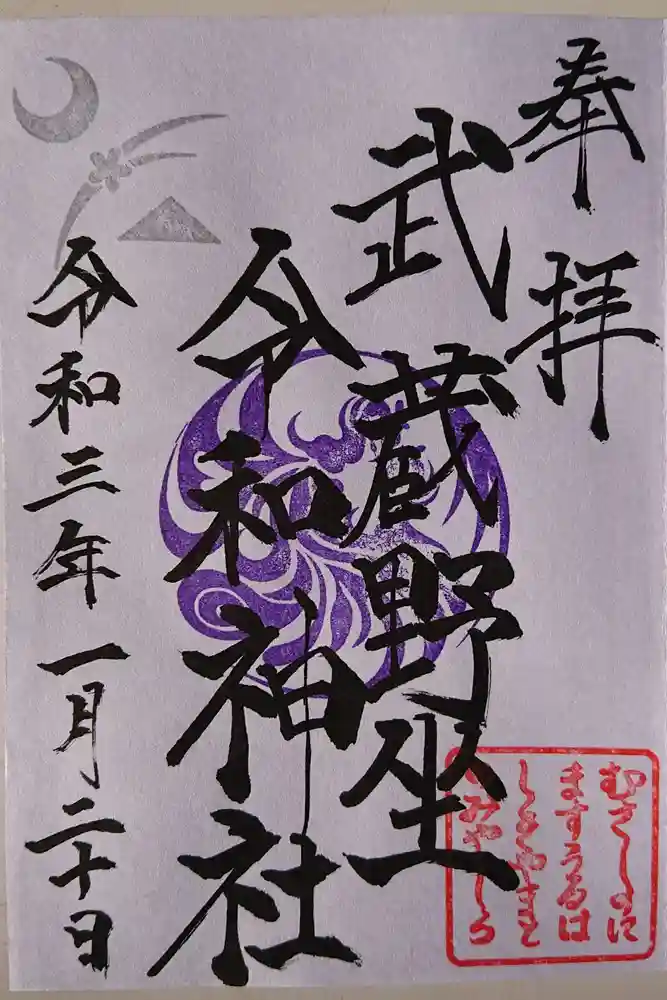 奉拝
武蔵野坐
令和神社
令和三年一月二十日
むさしのに
ますうるは
しきやまと
のみやしろ